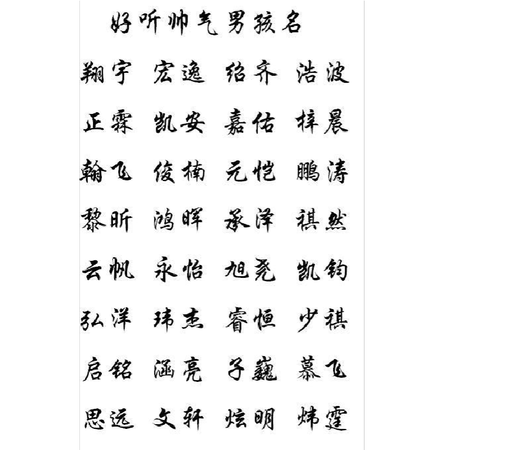 好听帅气男孩名
翔宇 宏逸 绍齐 浩波
正霖 凯安 嘉佑 梓晨
翰飞 俊楠 元恺 鹏涛
黎昕 鸿晖 承泽 祺然
云帆 永怡 旭尧 凯钧
弘洋 玮杰 睿恒 少祺
启铭 涵亮 子巍 慕飞
思远 文轩 炫明 炜霆